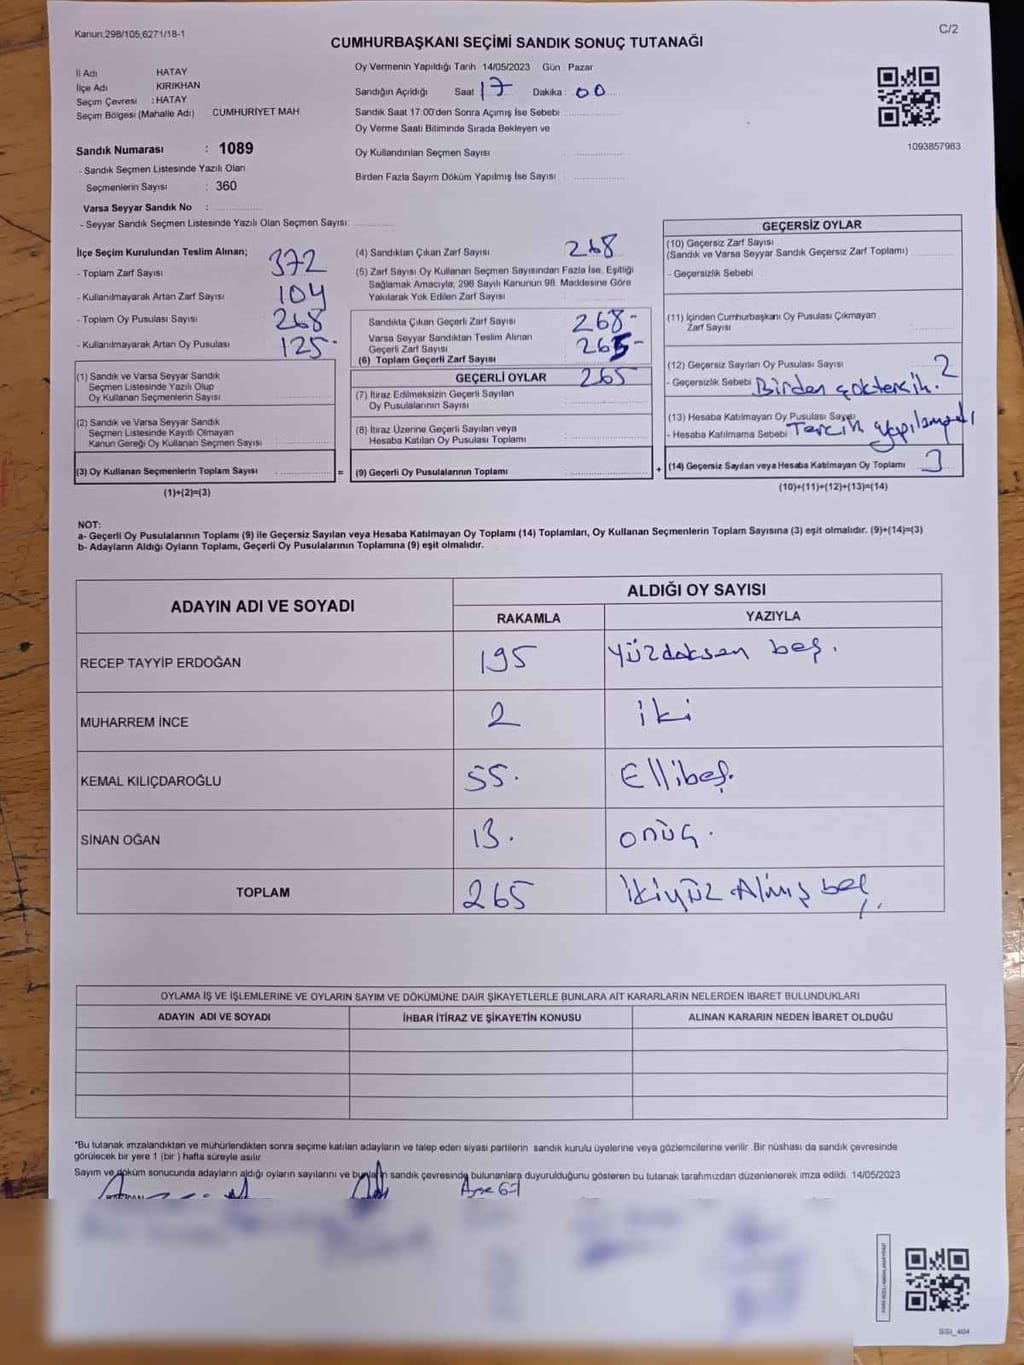 Kanun.298/105,6271/18-1
C/2
CUMHURBAŞKANI SEÇİMİ SANDIK SONUÇ TUTANAĞI
İl Adı HATAY
İlçe Adı KIRIKHAN
Seçim Çevresi :HATAY
Seçim Bölgesi (Mahalle Adı) CUMHURİYET MAH
Sandık Numarası : 1089
- Sandık Seçmen Listesinde Yazılı Olan
Seçmenlerin Sayısı : 360
Varsa Seyyar Sandık No :
- Seyyar Sandık Seçmen Listesinde Yazılı Olan Seçmen Sayısı:
Oy Vermenin Yapıldığı Tarih 14/05/2023 Gün Pazar
Sandığın Açıldığı Saat 17 Dakika 00
Sandık Saat 17.00'den Sonra Açımış İse Sebebi :
Oy Verme Saati Bitiminde Sırada Bekleyen ve
Oy Kullandırılan Seçmen Sayısı :
Birden Fazla Sayım Döküm Yapılmış İse Sayısı :
1093857983
İlçe Seçim Kurulundan Teslim Alınan;
- Toplam Zarf Sayısı 372
- Kullanılmayarak Artan Zarf Sayısı 104
- Toplam Oy Pusulası Sayısı 268
- Kullanılmayarak Artan Oy Pusulası 125
(1) Sandık ve Varsa Seyyar Sandık
Seçmen Listesinde Yazılı Olup
Oy Kullanan Seçmenlerin Sayısı :
(2) Sandık ve Varsa Seyyar Sandık
Seçmen Listesinde Kayıtlı Olmayan
Kanun Gereği Oy Kullanan Seçmen Sayısı :
(3) Oy Kullanan Seçmenlerin Toplam Sayısı :
(1)+(2)=(3)
=
(4) Sandıktan Çıkan Zarf Sayısı 268
(5) Zarf Sayısı Oy Kullanan Seçmen Sayısından Fazla İse, Eşitliği
Sağlamak Amacıyla; 298 Sayılı Kanunun 98. Maddesine Göre
Yakılarak Yok Edilen Zarf Sayısı :
Sandıkta Çıkan Geçerli Zarf Sayısı 268-
Varsa Seyyar Sandıktan Teslim Alınan
Geçerli Zarf Sayısı 265-
(6) Toplam Geçerli Zarf Sayısı
GEÇERLİ OYLAR 265
(7) İtiraz Edilmeksizin Geçerli Sayılan
Oy Pusulalarının Sayısı :
(8) İtiraz Üzerine Geçerli Sayılan veya
Hesaba Katılan Oy Pusulası Toplamı :
(9) Geçerli Oy Pusulalarının Toplamı :
+
GEÇERSİZ OYLAR
(10) Geçersiz Zarf Sayısı
(Sandık ve Varsa Seyyar Sandık Geçersiz Zarf Toplamı)
- Geçersizlik Sebebi
(11) İçinden Cumhurbaşkanı Oy Pusulası Çıkmayan
Zarf Sayısı
(12) Geçersiz Sayılan Oy Pusulası Sayısı 2
- Geçersizlik Sebebi Birden çok tercih.
(13) Hesaba Katılmayan Oy Pusulası Sayısı
- Hesaba Katılmama Sebebi Tercih yapılamadı
(14) Geçersiz Sayılan veya Hesaba Katılmayan Oy Toplamı 3
(10)+(11)+(12)+(13)=(14)
NOT:
a- Geçerli Oy Pusulalarının Toplamı (9) ile Geçersiz Sayılan veya Hesaba Katılmayan Oy Toplamı (14) Toplamları, Oy Kullanan Seçmenlerin Toplam Sayısına (3) eşit olmalıdır. (9)+(14)=(3)
b- Adayların Aldığı Oyların Toplamı, Geçerli Oy Pusulalarının Toplamına (9) eşit olmalıdır.
ADAYIN ADI VE SOYADI
ALDIĞI OY SAYISI
RAKAMLA YAZIYLA
RECEP TAYYİP ERDOĞAN 195 Yüzdoksan beş.
MUHARREM İNCE 2 iki
KEMAL KILIÇDAROĞLU 55. Ellibeş.
SİNAN OĞAN 13. onüç.
TOPLAM 265 ikiyüz Altmış beş
OYLAMA İŞ VE İŞLEMLERİNE VE OYLARIN SAYIM VE DÖKÜMÜNE DAİR ŞİKAYETLERLE BUNLARA AİT KARARLARIN NELERDEN İBARET BULUNDUKLARI
ADAYIN ADI VE SOYADI İHBAR İTİRAZ VE ŞİKAYETİN KONUSU ALINAN KARARIN NEDEN İBARET OLDUĞU
*Bu tutanak imzalandıktan ve mühürlendikten sonra seçime katılan adayların ve talep eden siyasi partilerin sandık kurulu üyelerine veya gözlemcilerine verilir .Bir nüshası da sandık çevresinde
görülecek bir yere 1 (bir ) hafta süreyle asılır.
Sayım ve döküm sonucunda adayların aldığı oyların sayılarını ve bunların sandık çevresinde bulunanlara duyurulduğunu gösteren bu tutanak tarafımızdan düzenlenerek imza edildi. 14/05/2023
SSI_404